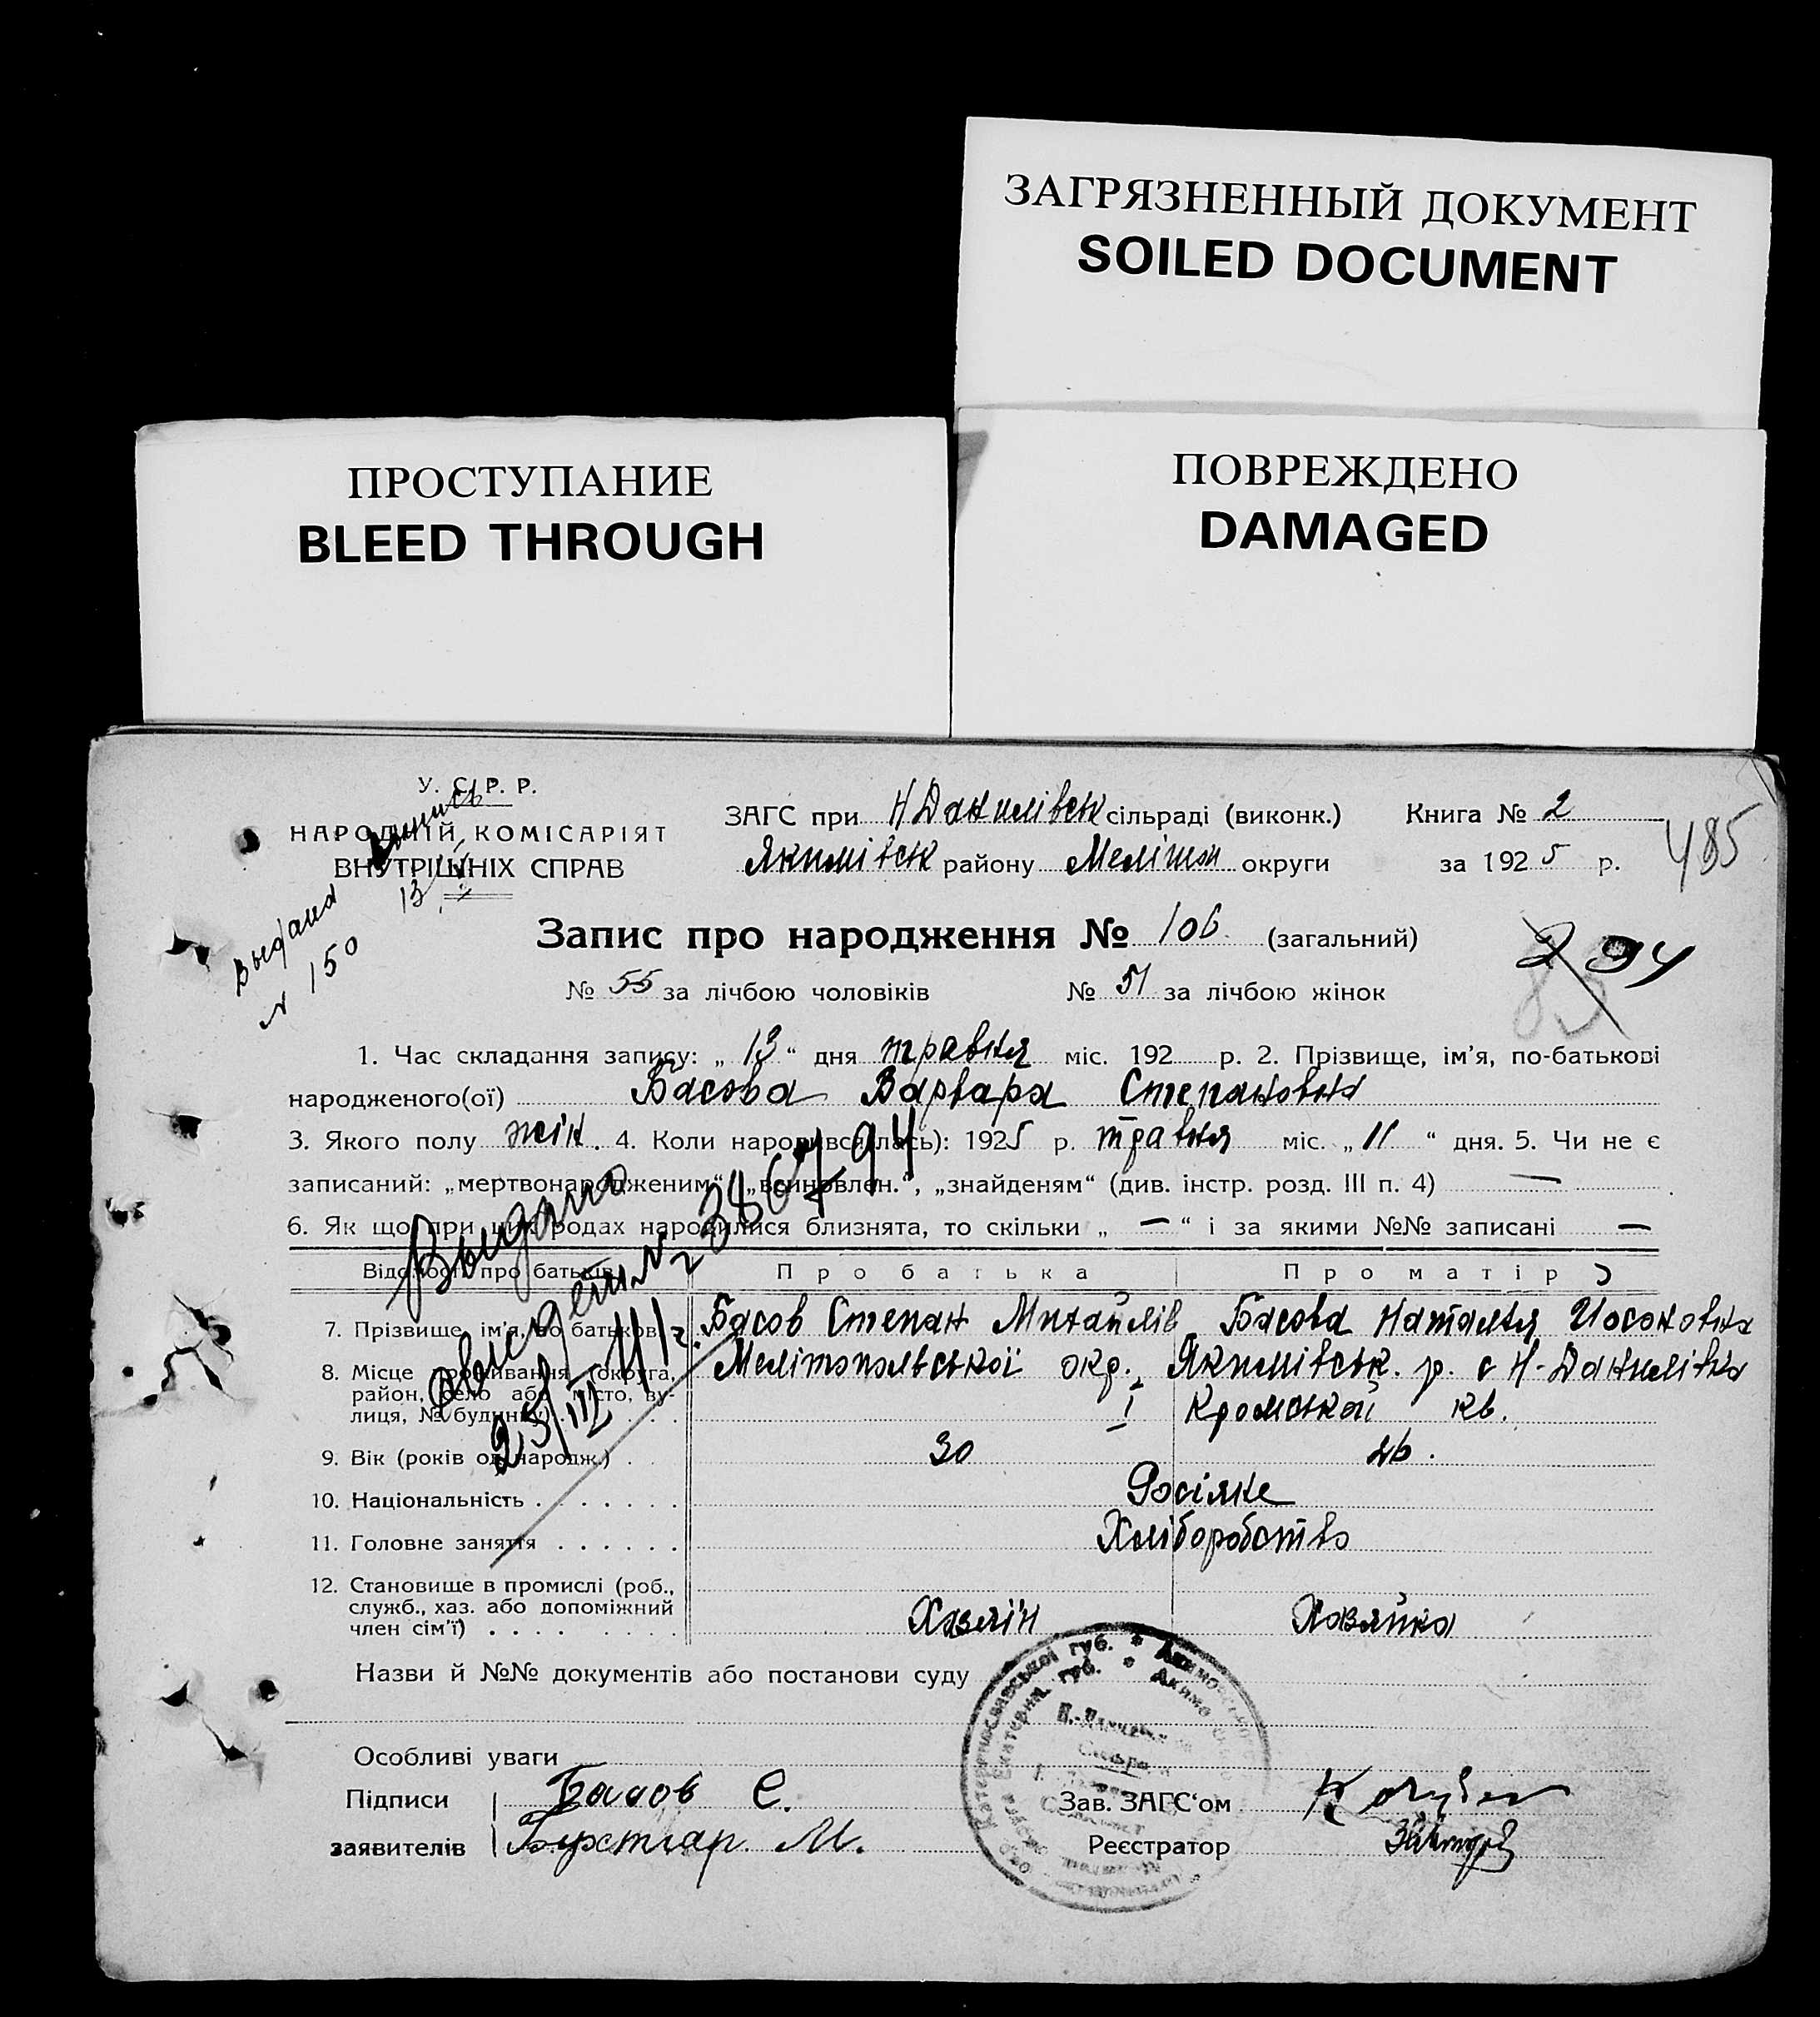 ЗАГРЯЗНЕННЫЙ ДОКУМЕНТ
SOILED DOCUMENT
ПРОСТУПАНИЕ
BLEED THROUGH
ПОВРЕЖДЕНО
DAMAGED
У. С. Р. Р.
НАРОДНІЙ КОМІСАРІЯТ
ВНУТРІШНІХ СПРАВ
Выдана выпись
№ 150 13
ЗАГС при Н Данилівськ сільраді (виконк.) Книга № 2
Якимівськ району Мелітоп округи за 1925 р.
485
Запис про народження № 106 (загальний)
2 94
83
№ 55 за лічбою чоловіків № 51 за лічбою жінок
1. Час складання запису: „ 13 “ дня травня міс. 192 р. 2. Прізвище, ім’я, по-батькові
народженого(ої) Басова Варвара Степановна
3. Якого полу жін. 4. Коли народився(лась): 1925 р. травня міс. „ 11 “ дня. 5. Чи не є
записаний: „мертвонародженим“, „всиновлен.“, „знайденям“ (див. інстр. розд. III п. 4) —
6. Як що при цих родах народилися близнята, то скільки „ — “ і за якими №№ записані —
Выдано
свидет. № 386794
Відомості про батьків Про батька Про матір
7. Прізвище, ім’я, по батькові Басов Степан Михайлів Басова Наталья
8. Місце проживання (округа, район, село або місто, вулиця, № будинку) Мелітопольської окр. Якимівськ. р. с Н-Данилівка
I Кромської кв.
9. Вік (років од народж.) 30 26.
10. Національність Росіяне
11. Головне заняття Хліборобство
12. Становище в промислі (роб., служб., хаз. або допоміжний член сім’ї) Хазяїн Хазяйка
Назви й №№ документів або постанови суду
Катеринославської губ. * Акимо
Екатерин. губ. * Акимо
Особливі уваги
Підписи Басов С. Зав. ЗАГС‘ом
заявителів М. Реєстратор